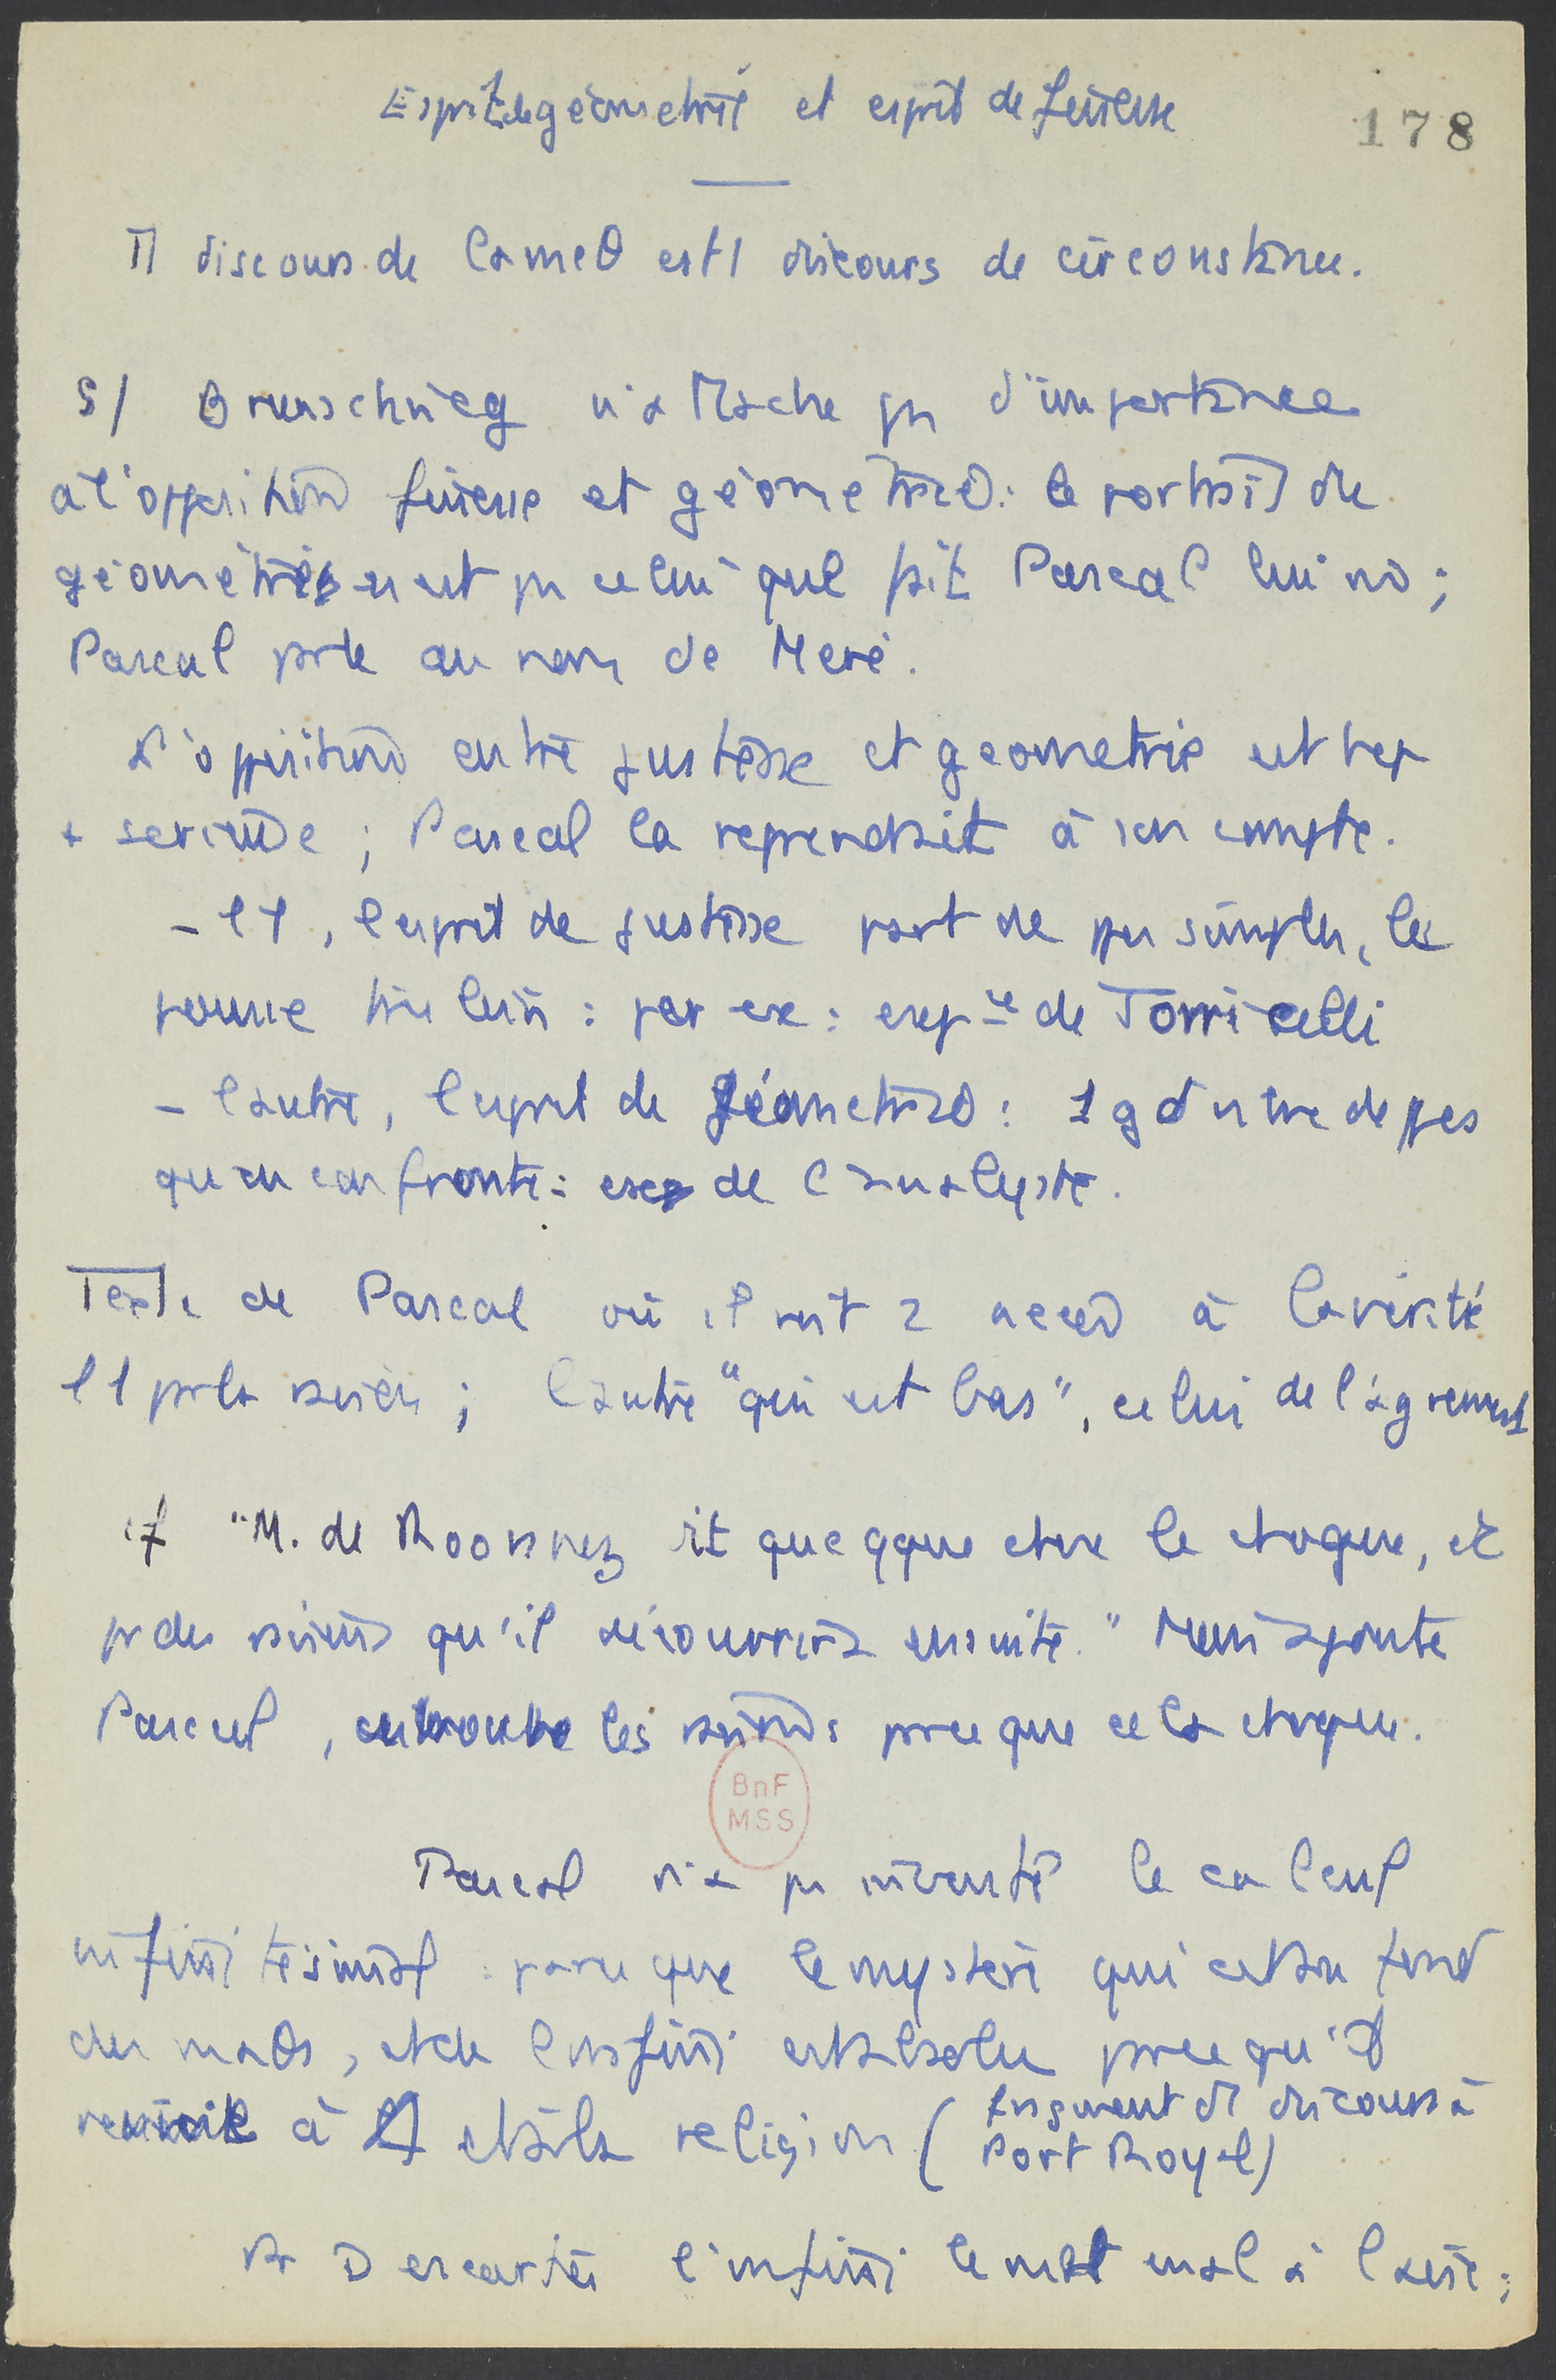 Esprit de géométrie et esprit de finesse
178
Tt discours de la méθ est 1 discours de circonstance.
S/ Brunschvicg n'attache pas d'importance
à l'opposition finesse et géométrie : le portrait du
géomètre n'est pas celui que fait Pascal lui m̂ ;
Pascal parle au nom de Méré.
L'opposition entre justesse et géométrie est bcp
+ sérieuse ; Pascal la reprendrait à son compte.
- l'1, l'esprit de justesse part de ppes simples, les
pousse très loin : par ex : expce de Torricelli
- l'autre, l'esprit de géométrie : 1 gd nbre de ppes
qu'on confronte : ex de l'analyste.
Texte de Pascal où il voit 2 accès à la vérité
l'1 par la raison ; l'autre "qui est bas", celui de l'agrément
cf "M. de Roannez dit que qque chose le choque, et
pr des raisons qu'il découvrira ensuite." Mais ajoute
Pascal, on trouve les raisons parce que cela choque.
BnF
MSS
Pascal n'a pas inventé le calcul
infinitésimal : parce que le mystère qui est au fond
des maths, et de l'infini est absolu parce qu'il
à et à la religion ( fragment d' discours à
Port Royal)
Descartes l'infini le met mal à l'aise ;